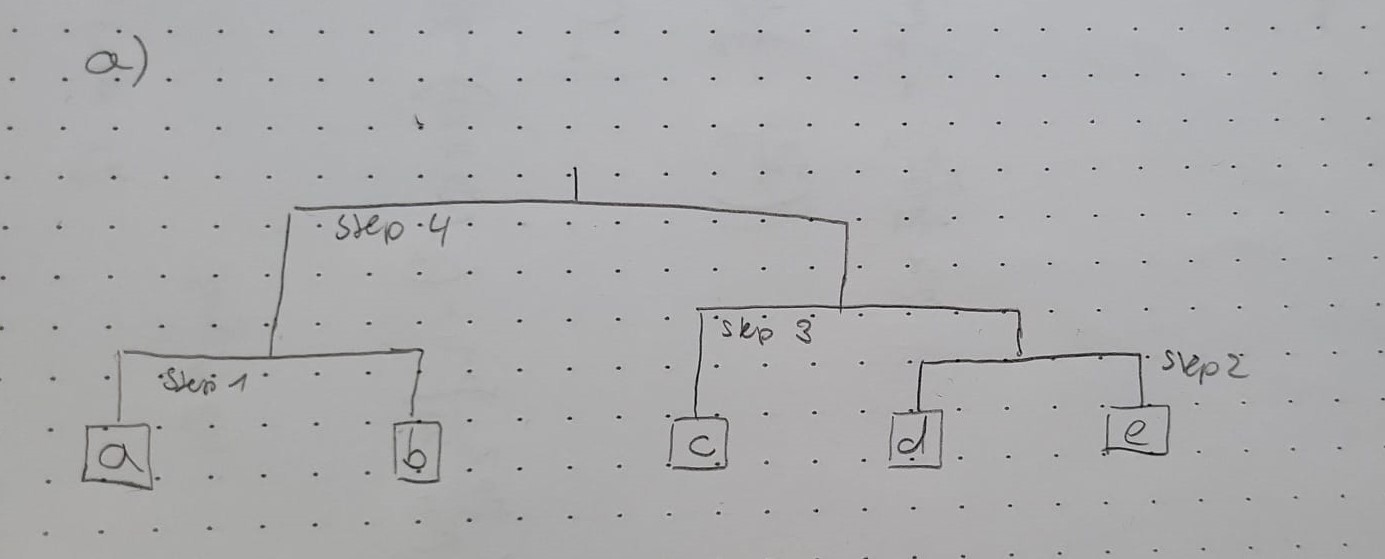 a)
step 4
step 3
step 1
step 2
a
b
c
d
e